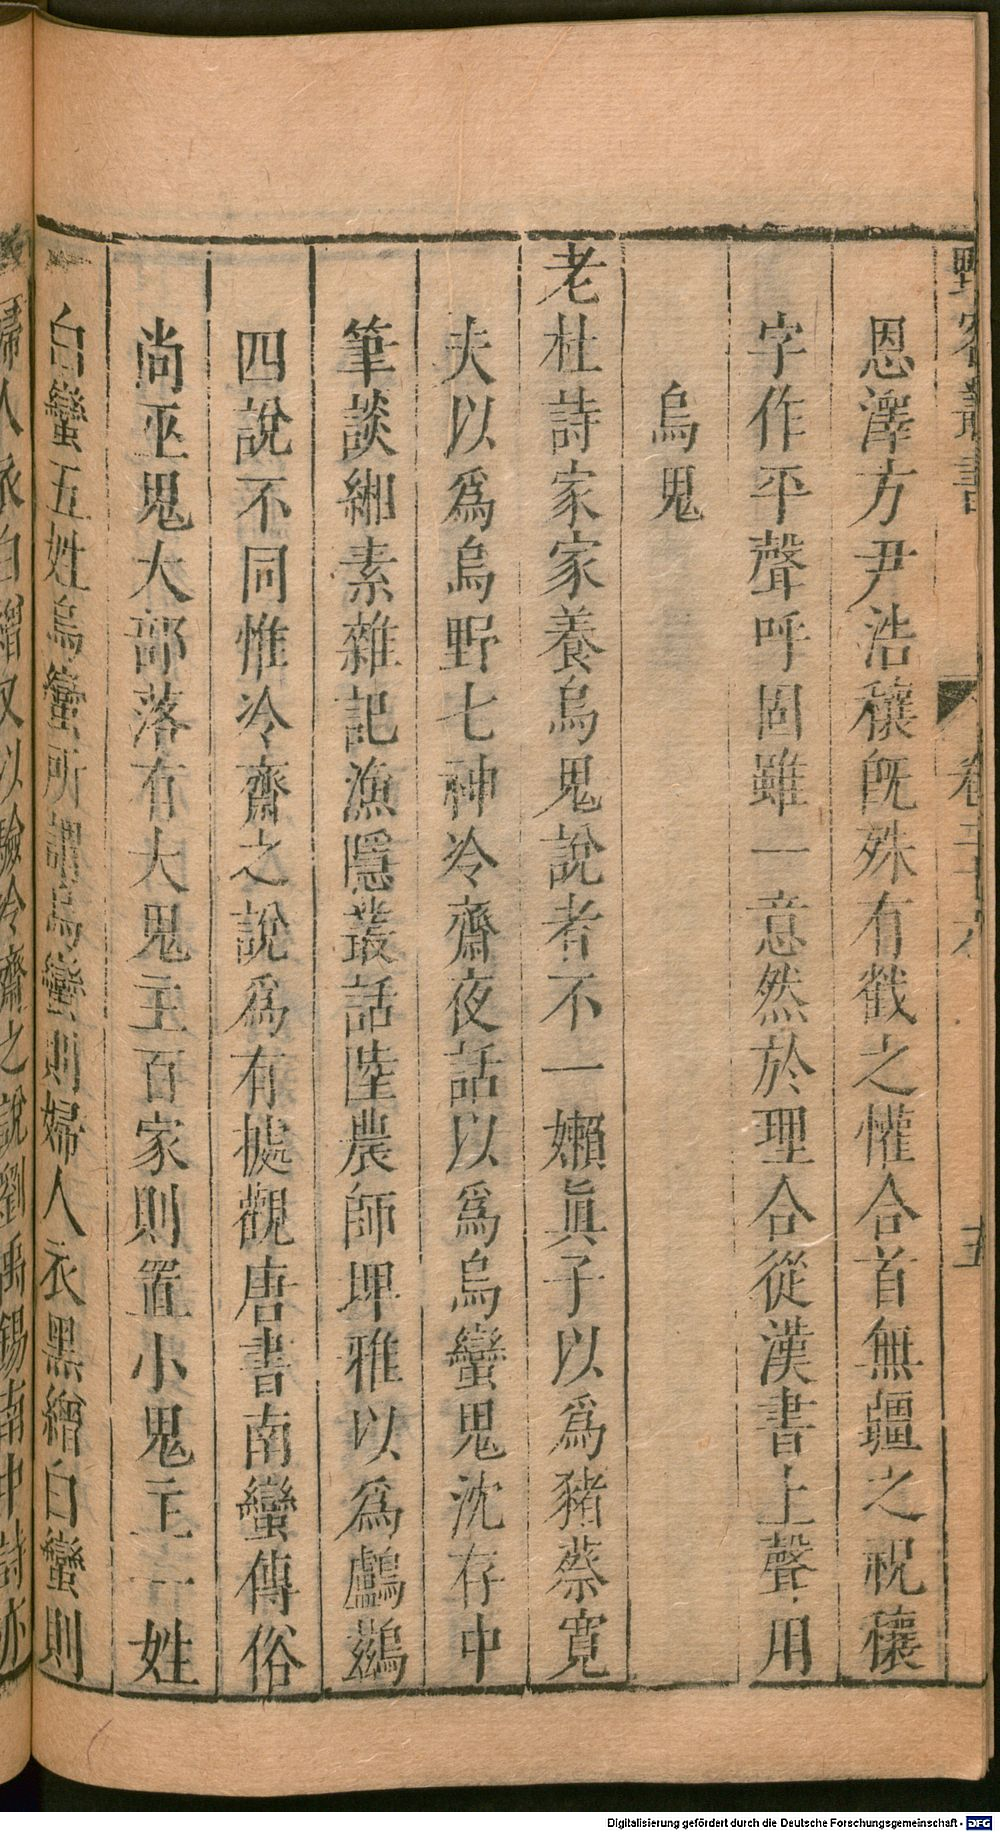 野客叢書 卷二十六 五
恩澤方尹浩穰旣殊有戴之懽合首無疆之祝穰
字作平聲呼固雖一意然於理合從漢書上聲用
烏鬼
老杜詩家家養烏鬼說者不一嬾眞子以爲豬蔡寬
夫以爲烏野七神冷齋夜話以爲烏蠻鬼沈存中
筆談緗素雜記漁隱叢話陸農師埤雅以爲鸕鷀
四說不同惟冷齋之說爲有據觀唐書南蠻傳俗
尚巫鬼大部落有大鬼主百家則置小鬼主一姓
白蠻五姓烏蠻所謂烏蠻則婦人衣黑繒白蠻則
婦人衣白繒又以驗冷齋之說劉禹錫南中詩亦
Digitalisierung gefördert durch die Deutsche Forschungsgemeinschaft - DFG